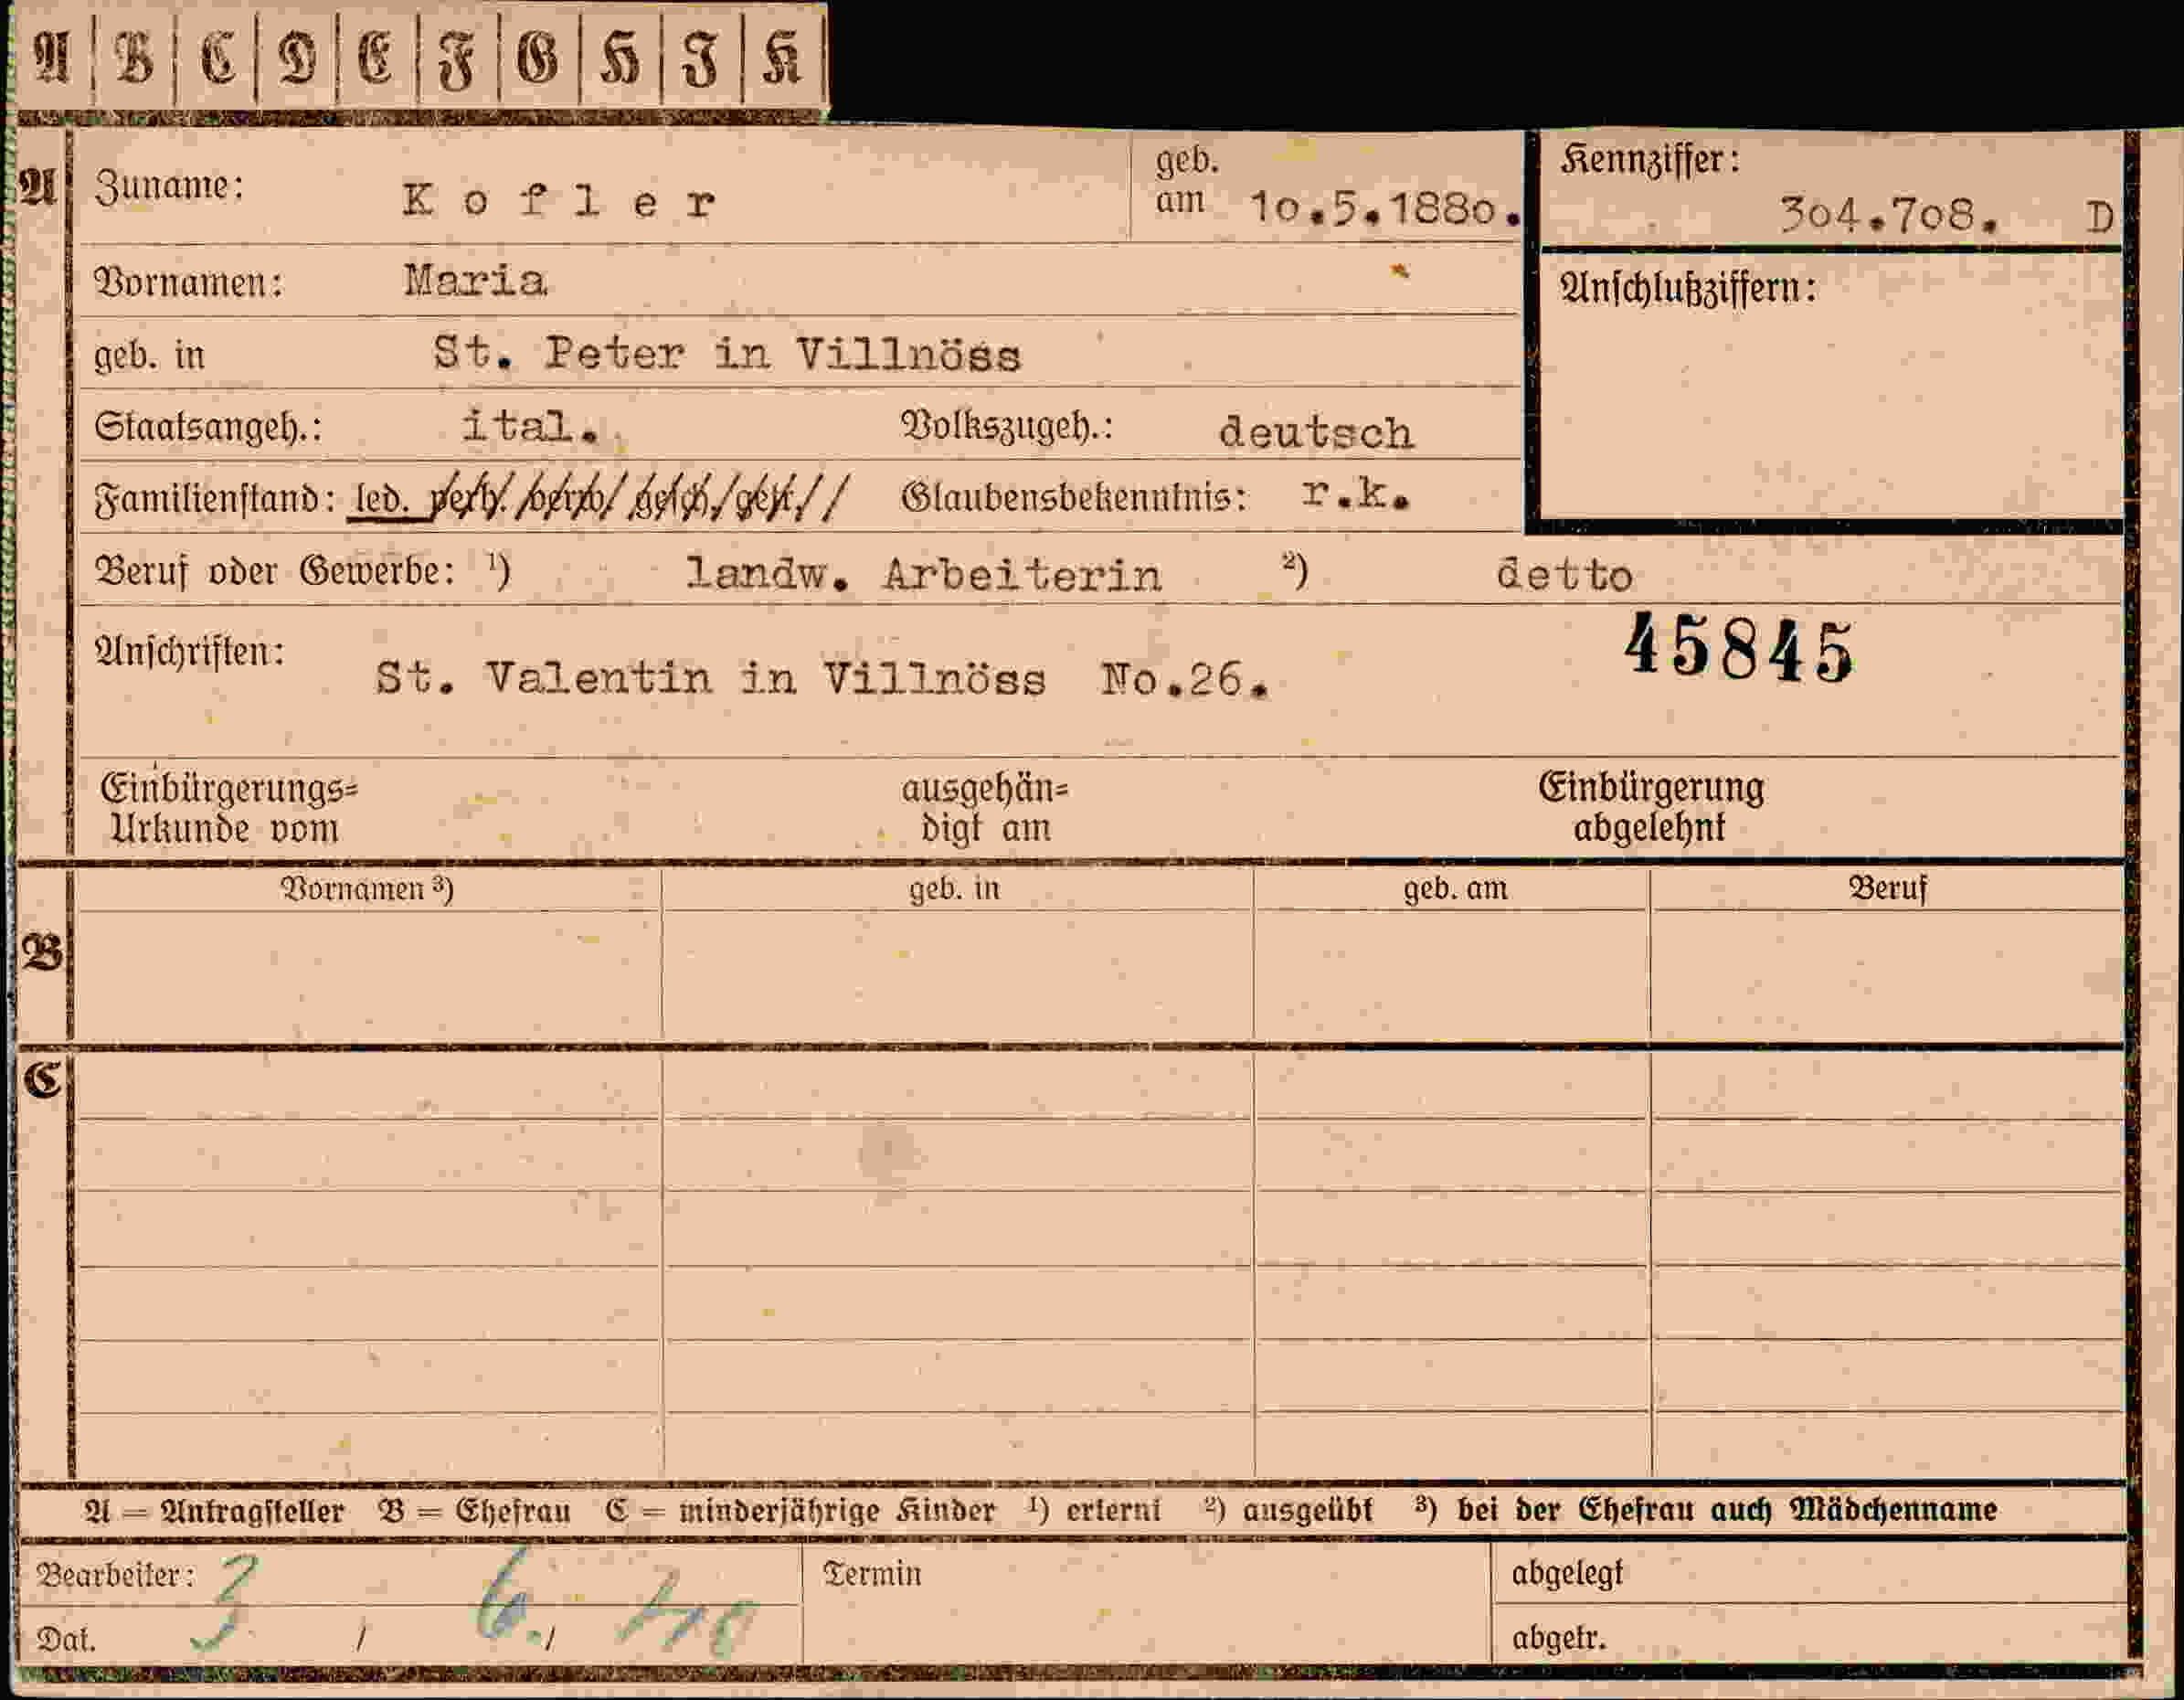 A B C D E F G H I K
A Zuname: Kofler geb. am 10.5.1880. Kennziffer: 304.708. D
Vornamen: Maria Anschlußziffern:
geb. in St. Peter in Villnöss
Staatsangeh.: ital. Volkszugeh.: deutsch
Familienstand: led. verh. verw. gesch. getr. Glaubensbekenntnis: r.k.
Beruf oder Gewerbe: ¹) landw. Arbeiterin ²) detto
45845
Anschriften: St. Valentin in Villnöss No.26.
Einbürgerungs= ausgehän= Einbürgerung
Urkunde vom digt am abgelehnt
Vornamen ³) geb. in geb. am Beruf
B
C
A = Antragsteller B = Ehefrau C = minderjährige Kinder ¹) erlernt ²) ausgeübt ³) bei der Ehefrau auch Mädchenname
Bearbeiter: Termin abgelegt
Dat. 3. / 6. / 40 abgetr.